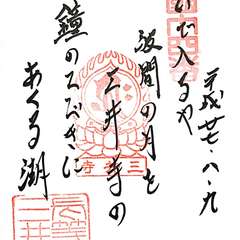 平成廿・八・九
いで入るや
波間の月を
三井寺の
鐘のひびきに
あくる湖